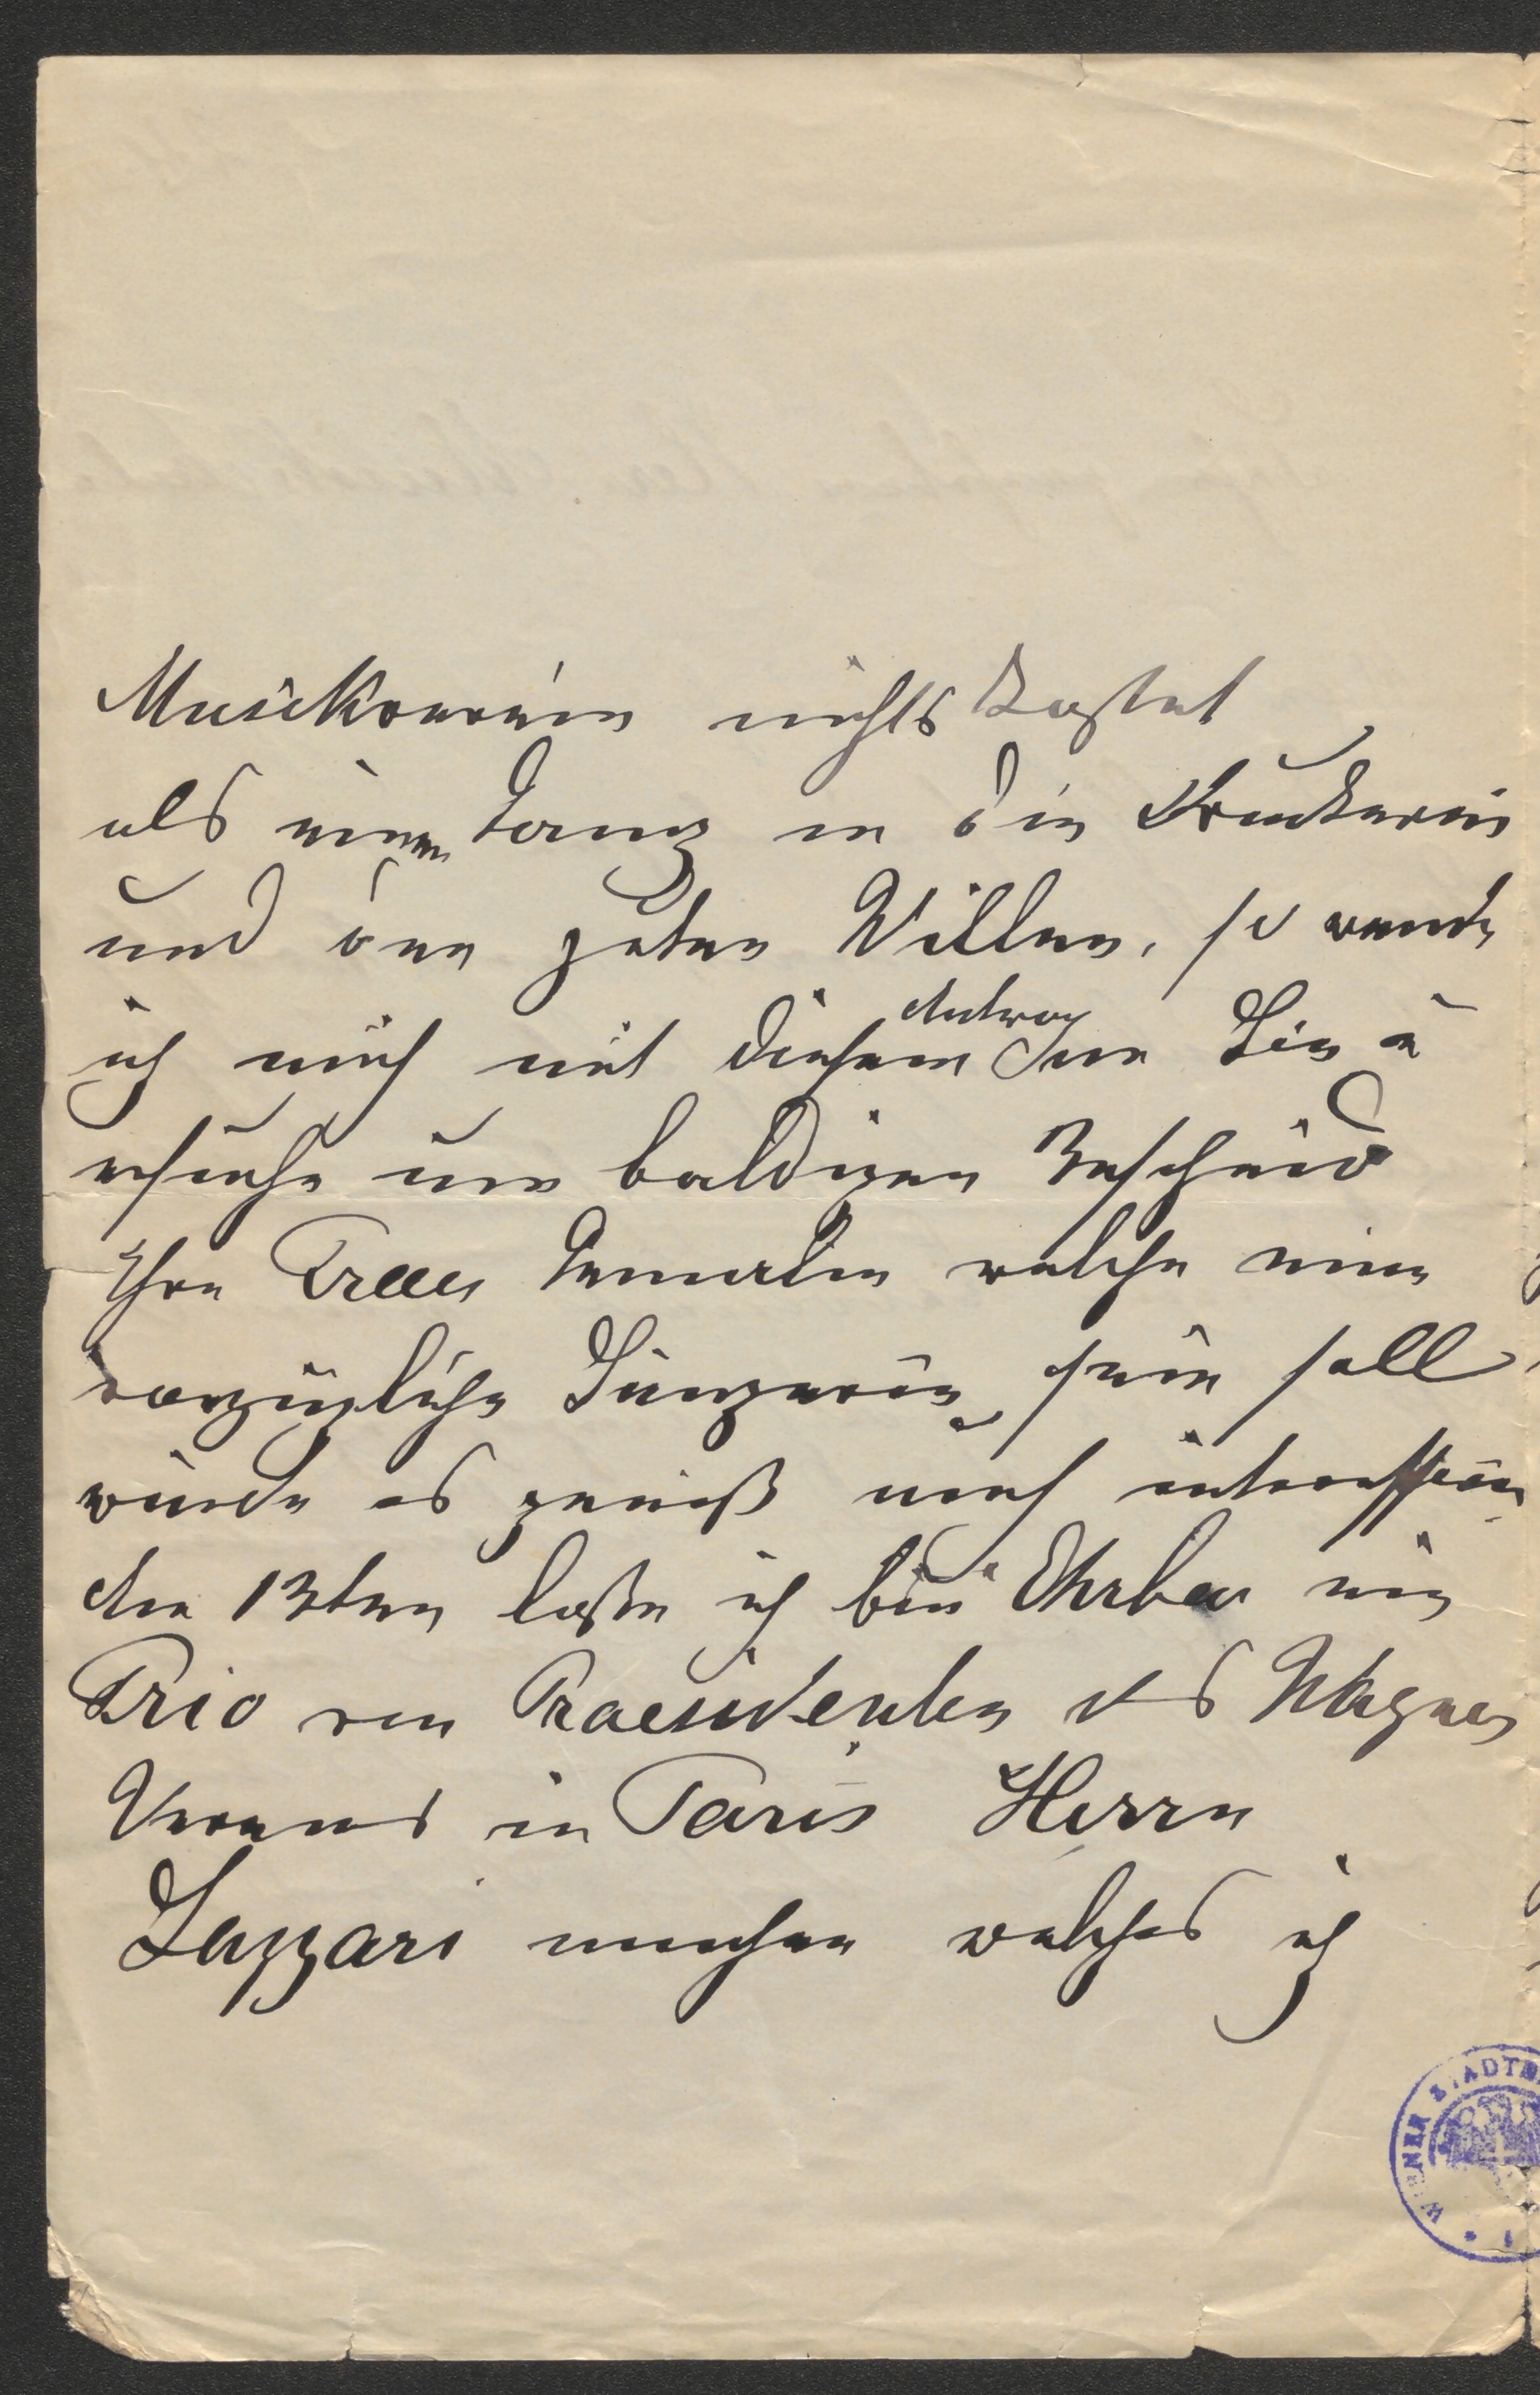 Musikverein nichts kostet
als einen Gang in die Druckerei
und den guten Willen, so wende
ich mich mit diesem Antrag an Sie u
ersuche um baldigen Bescheid
Ihre Frau Gemalin welche eine
vorzügliche Sängerin sein soll
würde es gewiß auch
Am 13ten laße ich bei Ehrbar ein
Trio von Praesidenten des Wagner
Vereins in Paris Herrn
Lazzari machen welches ich
WIENER STADTB